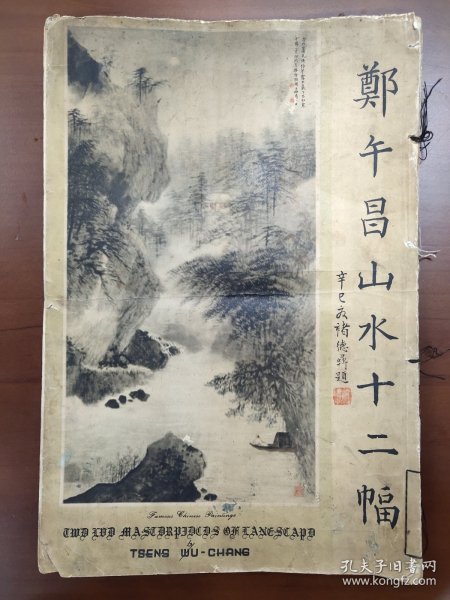 鄭午昌山水十二幅
辛巳夏褚德彝題
Famous Chinese Paintings
TWD LVD MASTDRPIDCDS OF LANESCAPD
by
TSENG WU-CHANG
孔夫子旧书网
www.kongfz.com